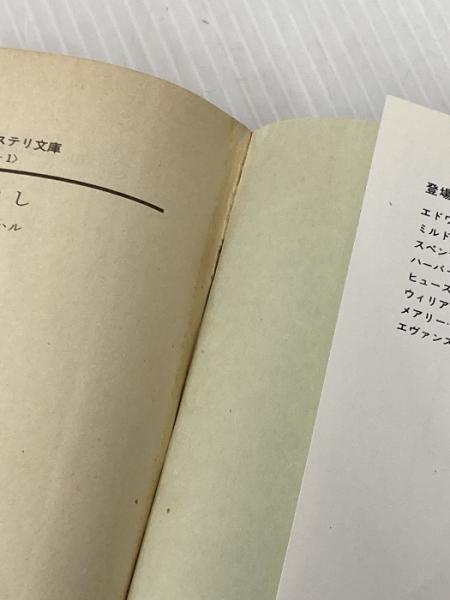 ステリ文庫
-1〉
し
ハル
登場
エドウ
ミルド
スペン
ハーバー
ヒューズ
ウィリア
メアリー・
エヴァンス